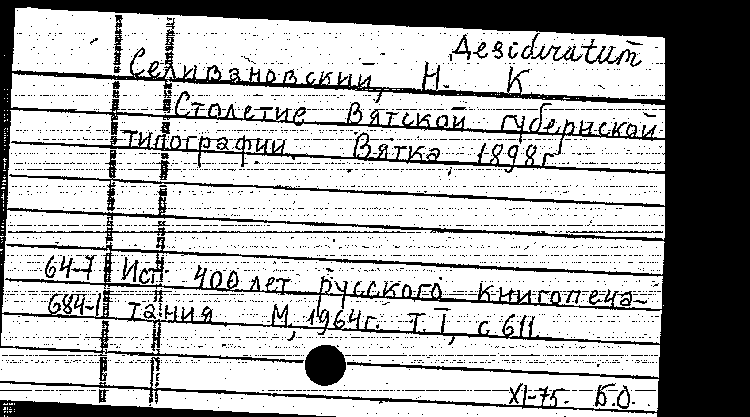 Desideratum
Селивановский, Н. К
Столетие Вятской губернской
типографии. Вятка, 1898г
64-7 Ист. 400 лет русского книгопеча-
684-1 тания. М, 1964г. Т. I, с. 611.
XI-75. Б.О.